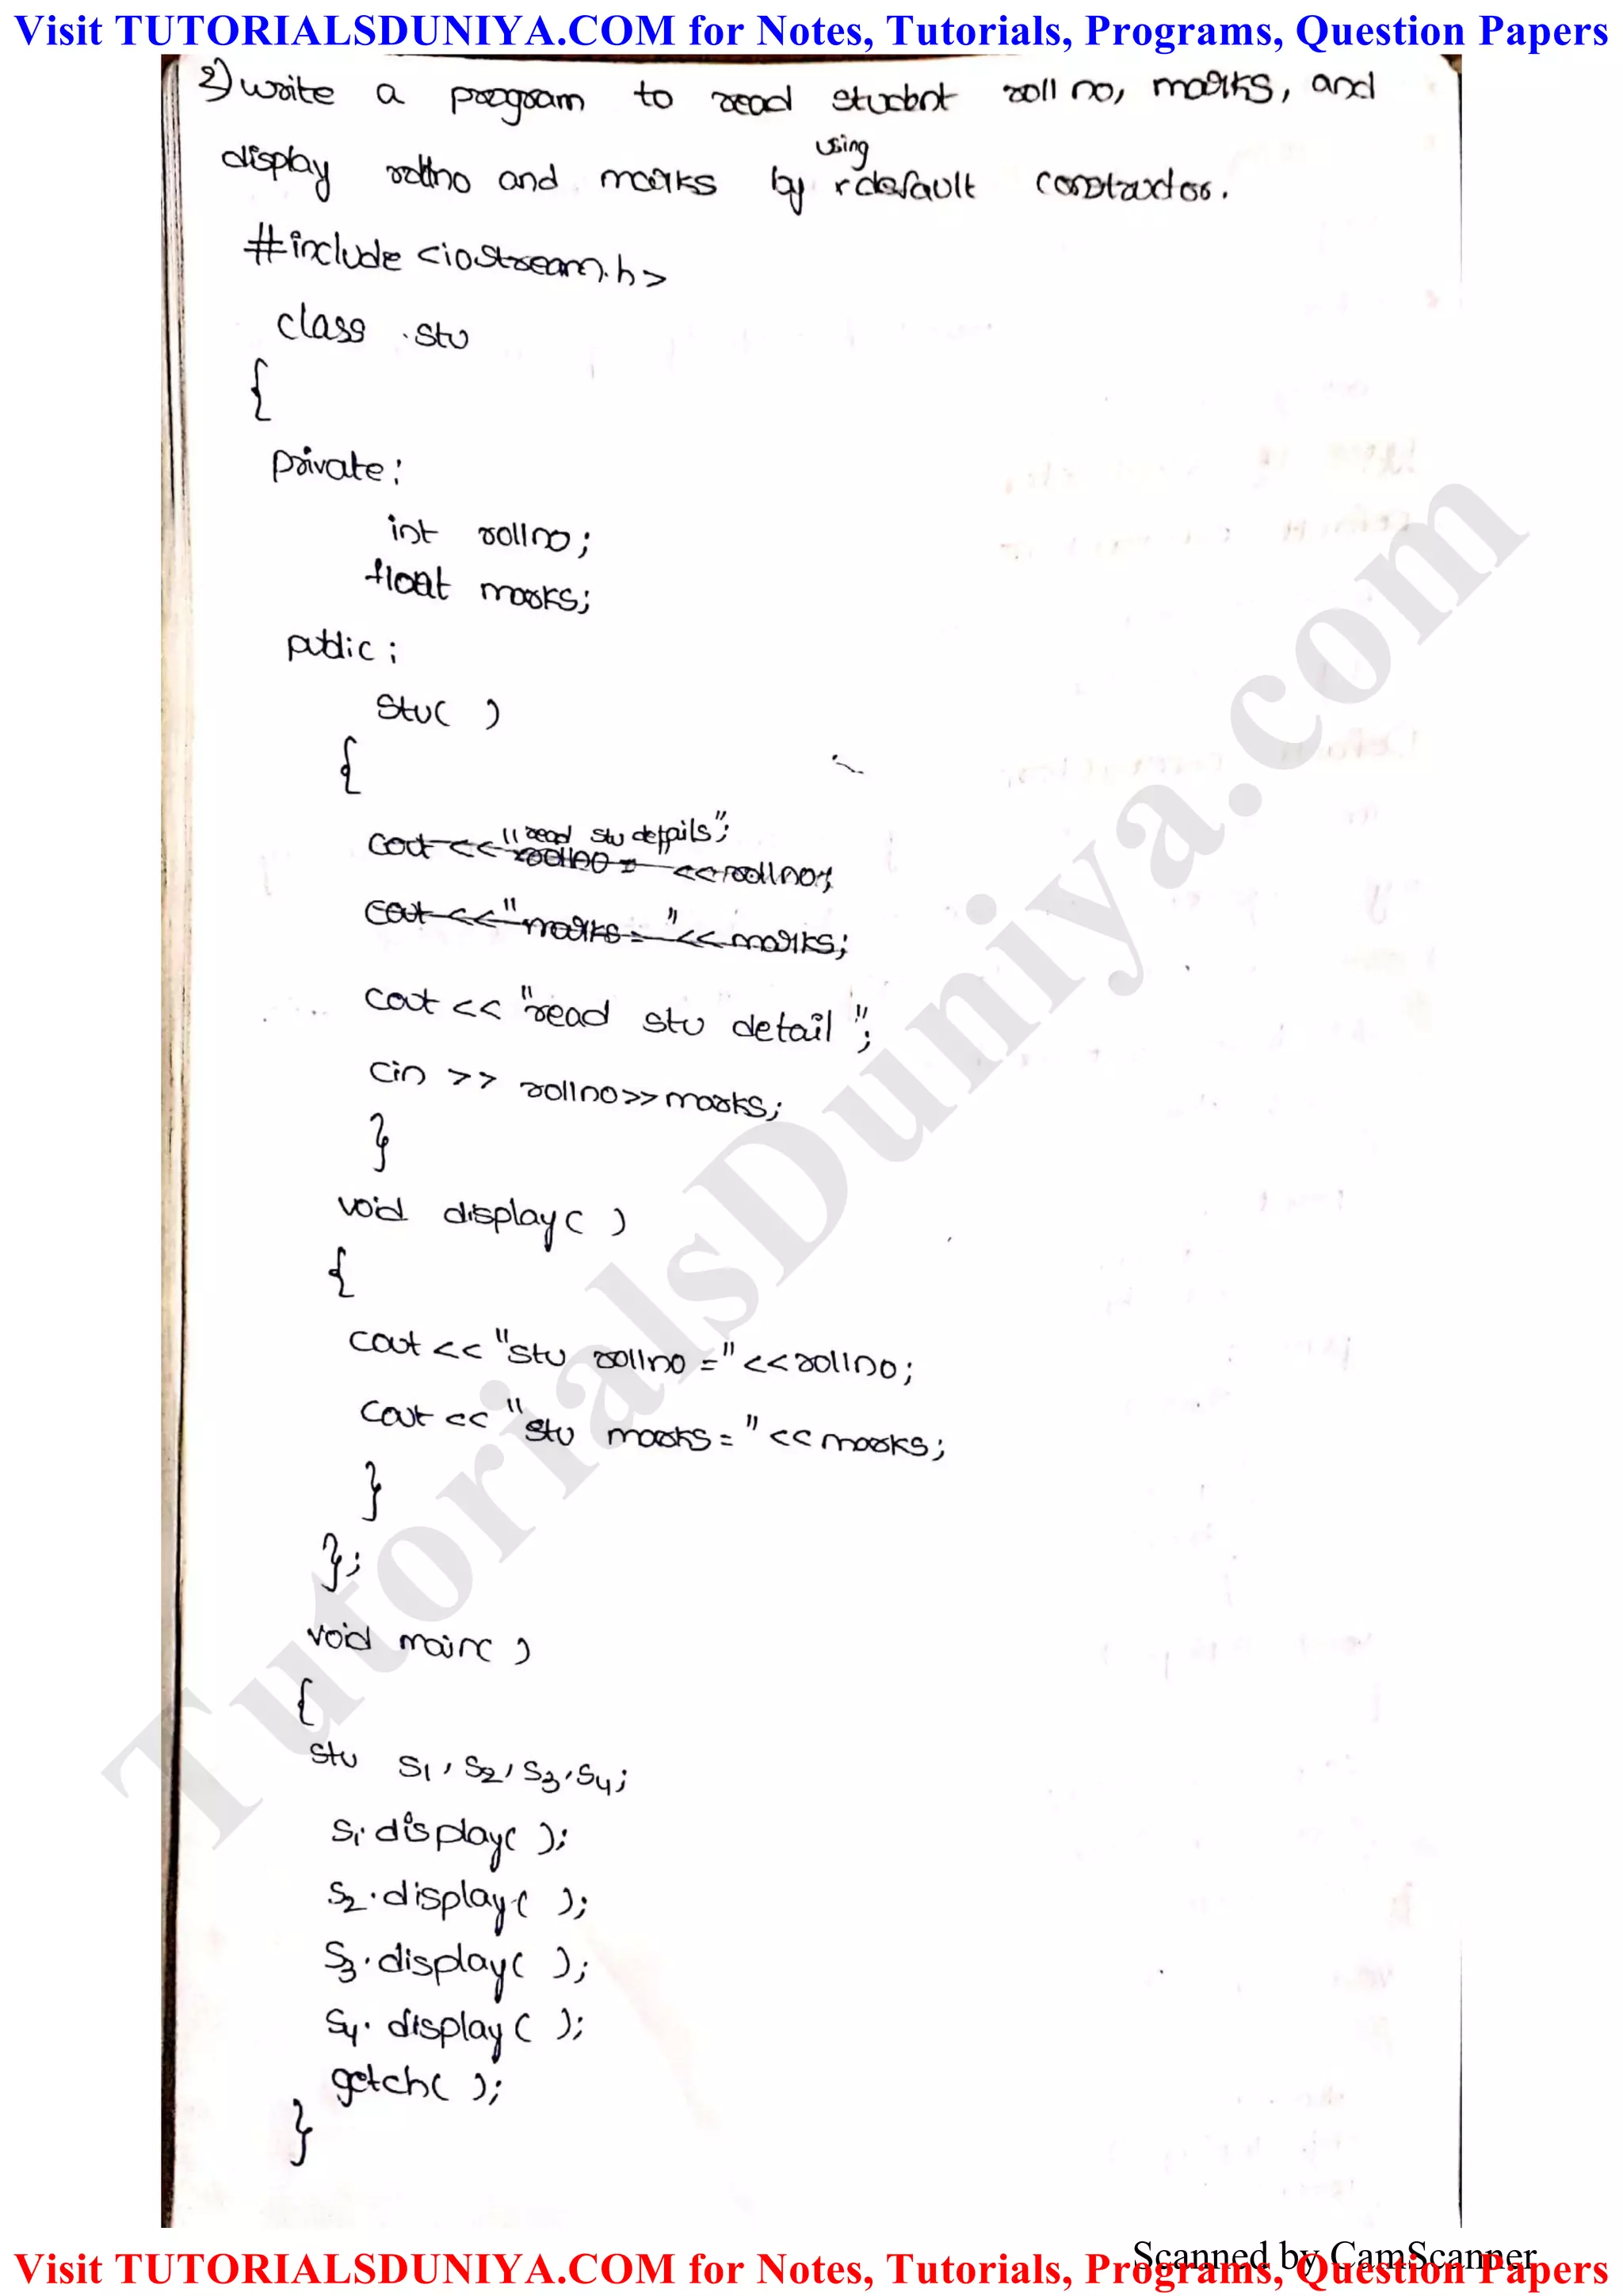 Visit TUTORIALSDUNIYA.COM for Notes, Tutorials, Programs, Question Papers
2) write a program to read student roll no, marks, and
using
display rollno and marks by default constructor.
#include <iostream.h>
class stu
{
private:
int rollno;
float marks;
public:
stu( )
{
"read stu details";
cout << "rollno = " << rollno;
cout << "marks = " << marks;
cout << "read stu detail";
cin >> rollno >> marks;
}
void display( )
{
cout << "stu rollno =" << rollno;
cout << "stu marks = " << marks;
}
};
void main( )
{
stu s1, s2, s3, s4;
s1.display( );
s2.display( );
s3.display( );
s4.display( );
getch( );
}
TutorialsDuniya.com
Scanned by CamScanner
Visit TUTORIALSDUNIYA.COM for Notes, Tutorials, Programs, Question Papers